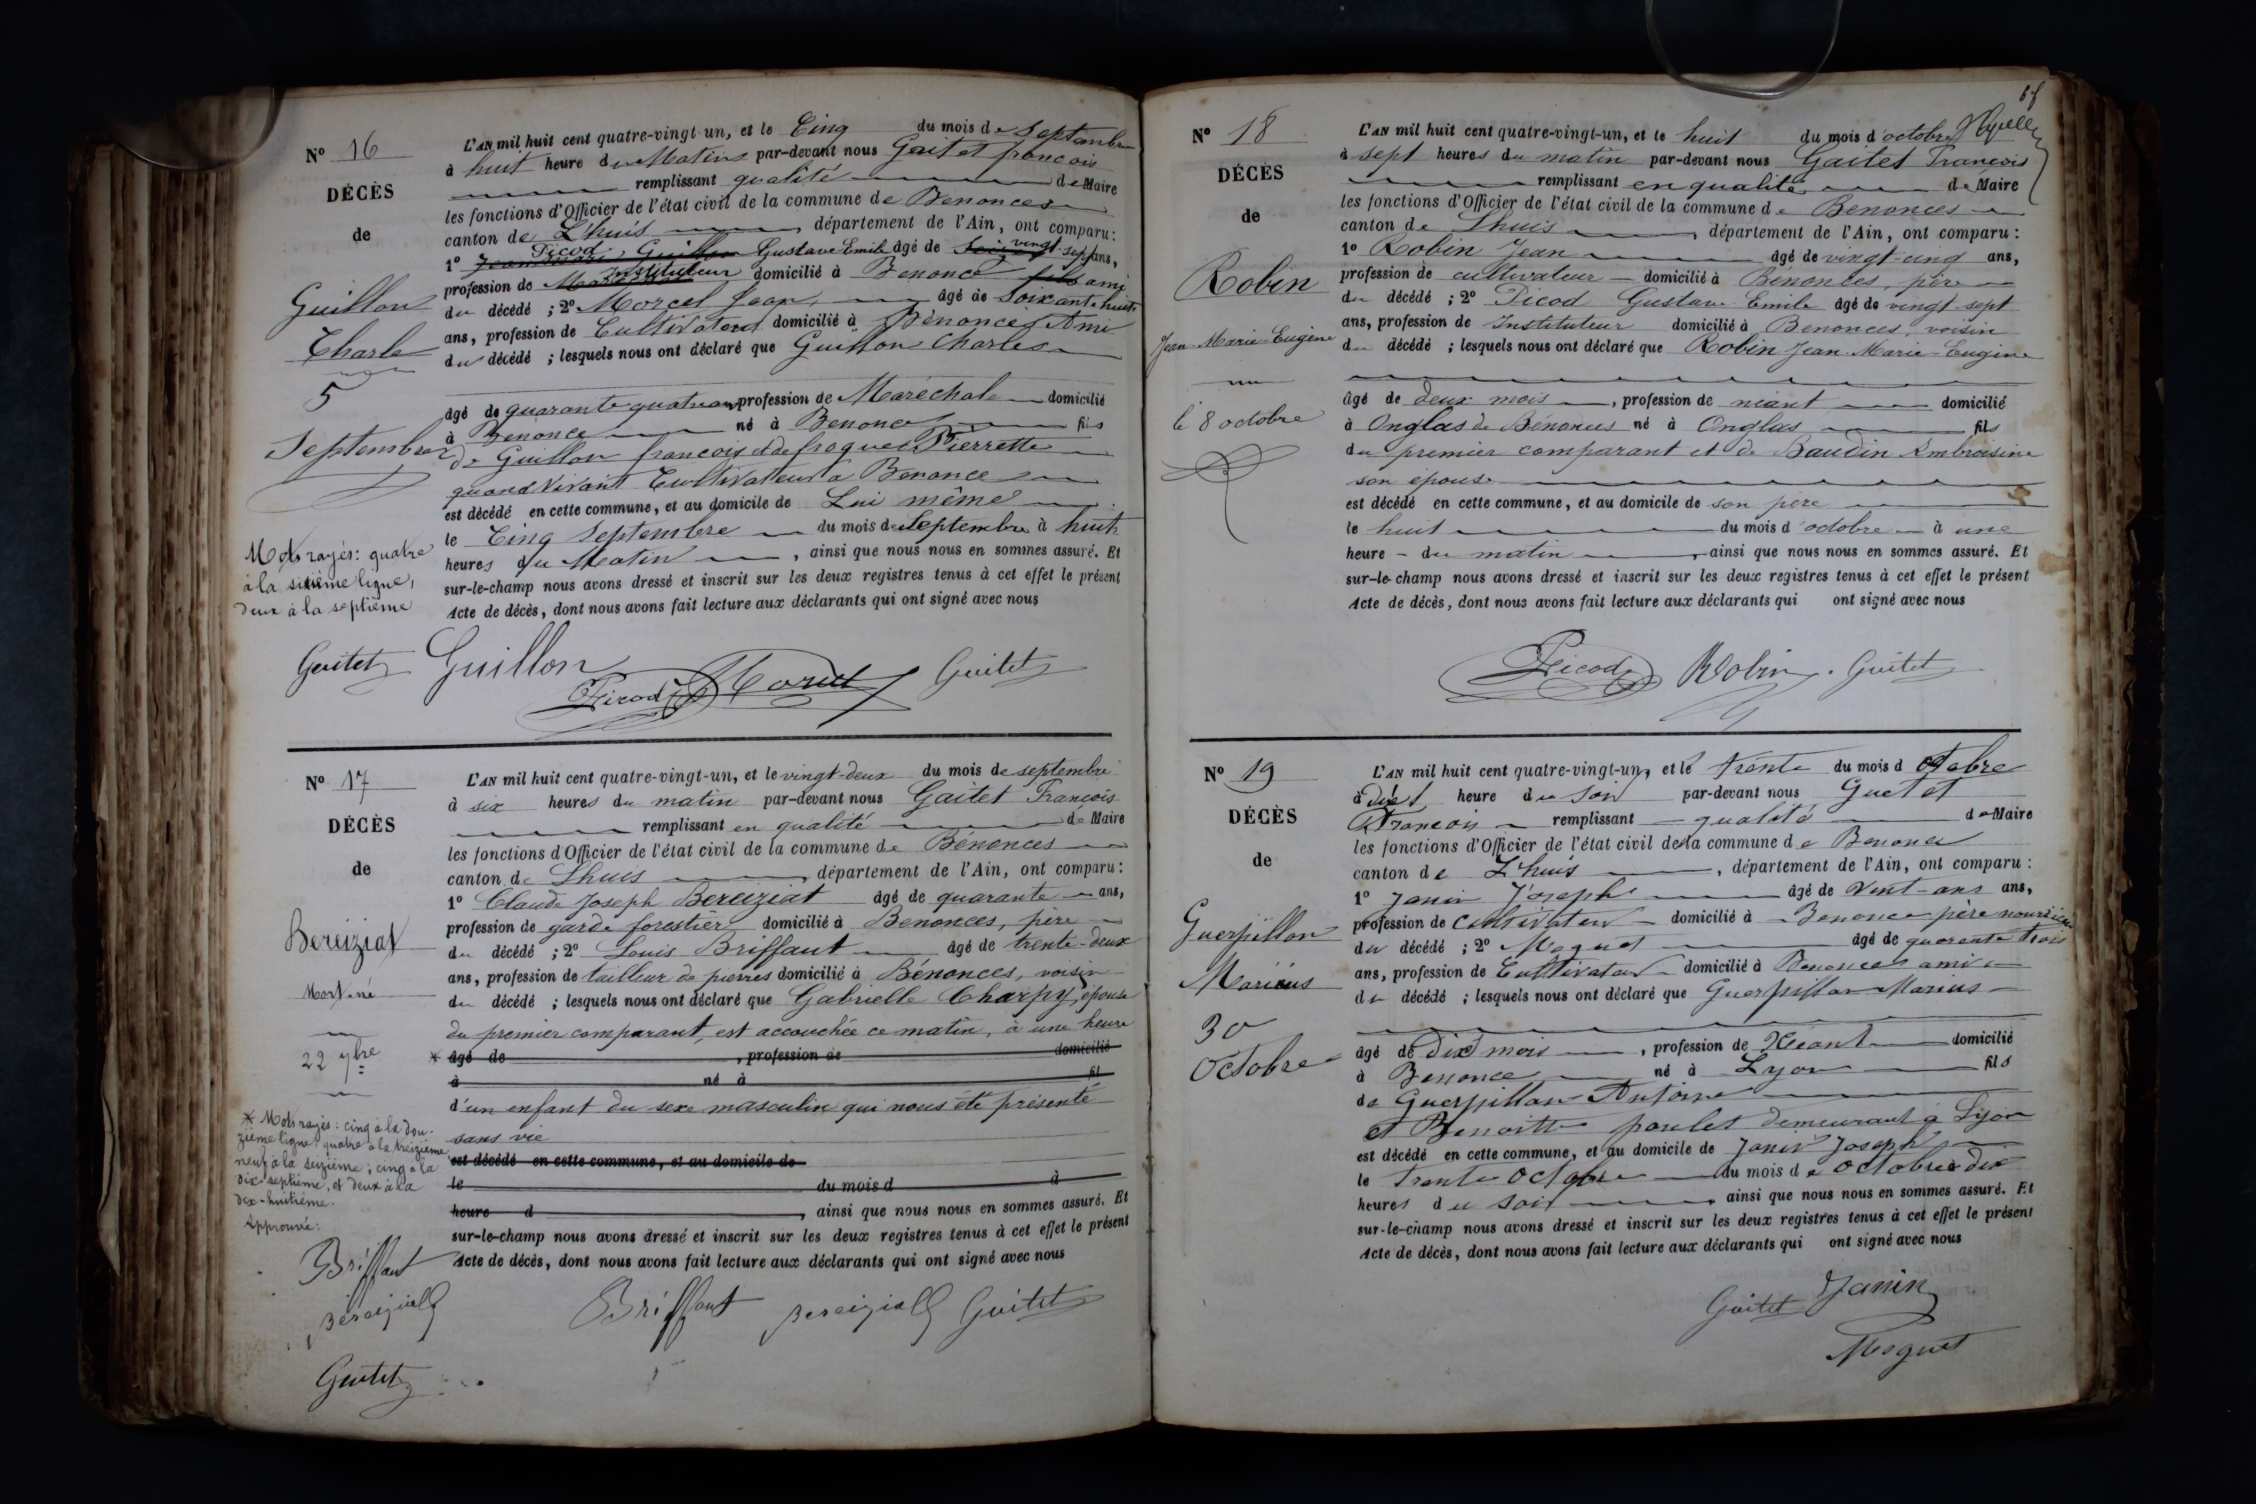 Nº 16
DÉCÈS
de
Guillon
Charle
5
Septembre
Mots rayés: quatre
à la sixième ligne,
deux à la septième
L'AN mil huit cent quatre-vingt un, et le Cinq du mois de Septembre
à huit heure du Matin par-devant nous Gaitet francois
remplissant qualité de Maire
les fonctions d'Officier de l'état civil de la commune de Benonces
canton de Lhuis, département de l'Ain, ont comparu:
1º Picod Gustave Emile âgé de vingt-sept ans,
profession de instituteur domicilié à Benonce ami
du décédé; 2º Morcel Jean, âgé de Soixante huit
ans, profession de Cultivateur domicilié à Bénonces Ami
du décédé; lesquels nous ont déclaré que Guillon Charles
âgé de quarante quatre ans profession de Maréchal domicilié
à Bénonce né à Benonce fils
de Guillon francois et de froquet Pierrette
quand vivant Cultivateur a Benonce
est décédé en cette commune, et au domicile de Lui même
le Cinq Septembre du mois de Septembre à huit
heures du Matin, ainsi que nous nous en sommes assuré. Et
sur-le-champ nous avons dressé et inscrit sur les deux registres tenus à cet effet le présent
Acte de décès, dont nous avons fait lecture aux déclarants qui ont signé avec nous
Gaitet Guillon Picod Morcel Gaitet
Nº 17
DÉCÈS
de
Bereiziat
Mort-né
22 7bre
* Mots rayés: cinq à la dou-
zième ligne; quatre à la treizième,
neuf à la seizième; cinq à la
dix-septième, et deux à la
dix-huitième.
Approuvé:
Briffaut
Béreiziat
Gaitet
L'AN mil huit cent quatre-vingt-un, et le vingt-deux du mois de septembre
à six heures du matin par-devant nous Gaitet François
remplissant en qualité de Maire
les fonctions d'Officier de l'état civil de la commune de Bénonces
canton de Lhuis, département de l'Ain, ont comparu:
1º Claude Joseph Bereiziat âgé de quarante ans,
profession de garde forestier domicilié à Benonces, père
du décédé; 2º Louis Briffaut âgé de trente-deux
ans, profession de tailleur de pierres domicilié à Bénonces, voisin
du décédé; lesquels nous ont déclaré que Gabrielle Charpy, épouse
du premier comparant, est accouchée ce matin, à une heure
* âgé de, profession de domicilié
à né à fil
d'un enfant du sexe masculin qui nous été présenté
sans vie
est décédé en cette commune, et au domicile de
le du mois d à
heure d, ainsi que nous nous en sommes assuré. Et
sur-le-champ nous avons dressé et inscrit sur les deux registres tenus à cet effet le présent
Acte de décès, dont nous avons fait lecture aux déclarants qui ont signé avec nous
Briffaut Bereiziat Gaitet
Nº 18
DÉCÈS
de
Robin
Jean-Marie-Eugène
le 8 octobre
L'AN mil huit cent quatre-vingt-un, et le huit du mois d'octobre
à sept heures du matin par-devant nous Gaitet François
remplissant en qualité de Maire
les fonctions d'Officier de l'état civil de la commune de Benonces
canton de Lhuis, département de l'Ain, ont comparu:
1º Robin Jean âgé de vingt-cinq ans,
profession de cultivateur domicilié à Bénonces, père
du décédé; 2º Picod Gustave Emile âgé de vingt-sept
ans, profession de Instituteur domicilié à Benonces, voisin
du décédé; lesquels nous ont déclaré que Robin Jean-Marie-Eugène
âgé de deux mois, profession de néant domicilié
à Onglas de Bénonces né à Onglas fils
du premier comparant et de Baudin Ambroisine
son épouse
est décédé en cette commune, et au domicile de son père
le huit du mois d'octobre à une
heure du matin, ainsi que nous nous en sommes assuré. Et
sur-le-champ nous avons dressé et inscrit sur les deux registres tenus à cet effet le présent
Acte de décès, dont nous avons fait lecture aux déclarants qui ont signé avec nous
Picod Robin. Gaitet
Nº 19
DÉCÈS
de
Guerpillon
Marius
30
Octobre
L'AN mil huit cent quatre-vingt-un, et le trente du mois d Octobre
à heure du Soir par-devant nous Guetet
François remplissant qualité de Maire
les fonctions d'Officier de l'état civil de la commune de Benonce
canton de Lhuis, département de l'Ain, ont comparu:
1º Janin Joseph âgé de Vint-ans ans,
profession de Cultivateur domicilié à Benonce père nourricier
du décédé; 2º Moguet âgé de quarente trois
ans, profession de Cultivateur domicilié à Benonces ami
du décédé; lesquels nous ont déclaré que Guerpillon Marius
âgé de Dix mois, profession de Néant domicilié
à Benonce né à Lyon fils
de Guerpillon Antoine
et Benoitte poulet demeurant à Lyon
est décédé en cette commune, et au domicile de Janin Joseph
le Trente Octobre du mois de Octobre à dix
heures du soir, ainsi que nous nous en sommes assuré. Et
sur-le-champ nous avons dressé et inscrit sur les deux registres tenus à cet effet le présent
Acte de décès, dont nous avons fait lecture aux déclarants qui ont signé avec nous
Gaitet Janin
Moguet